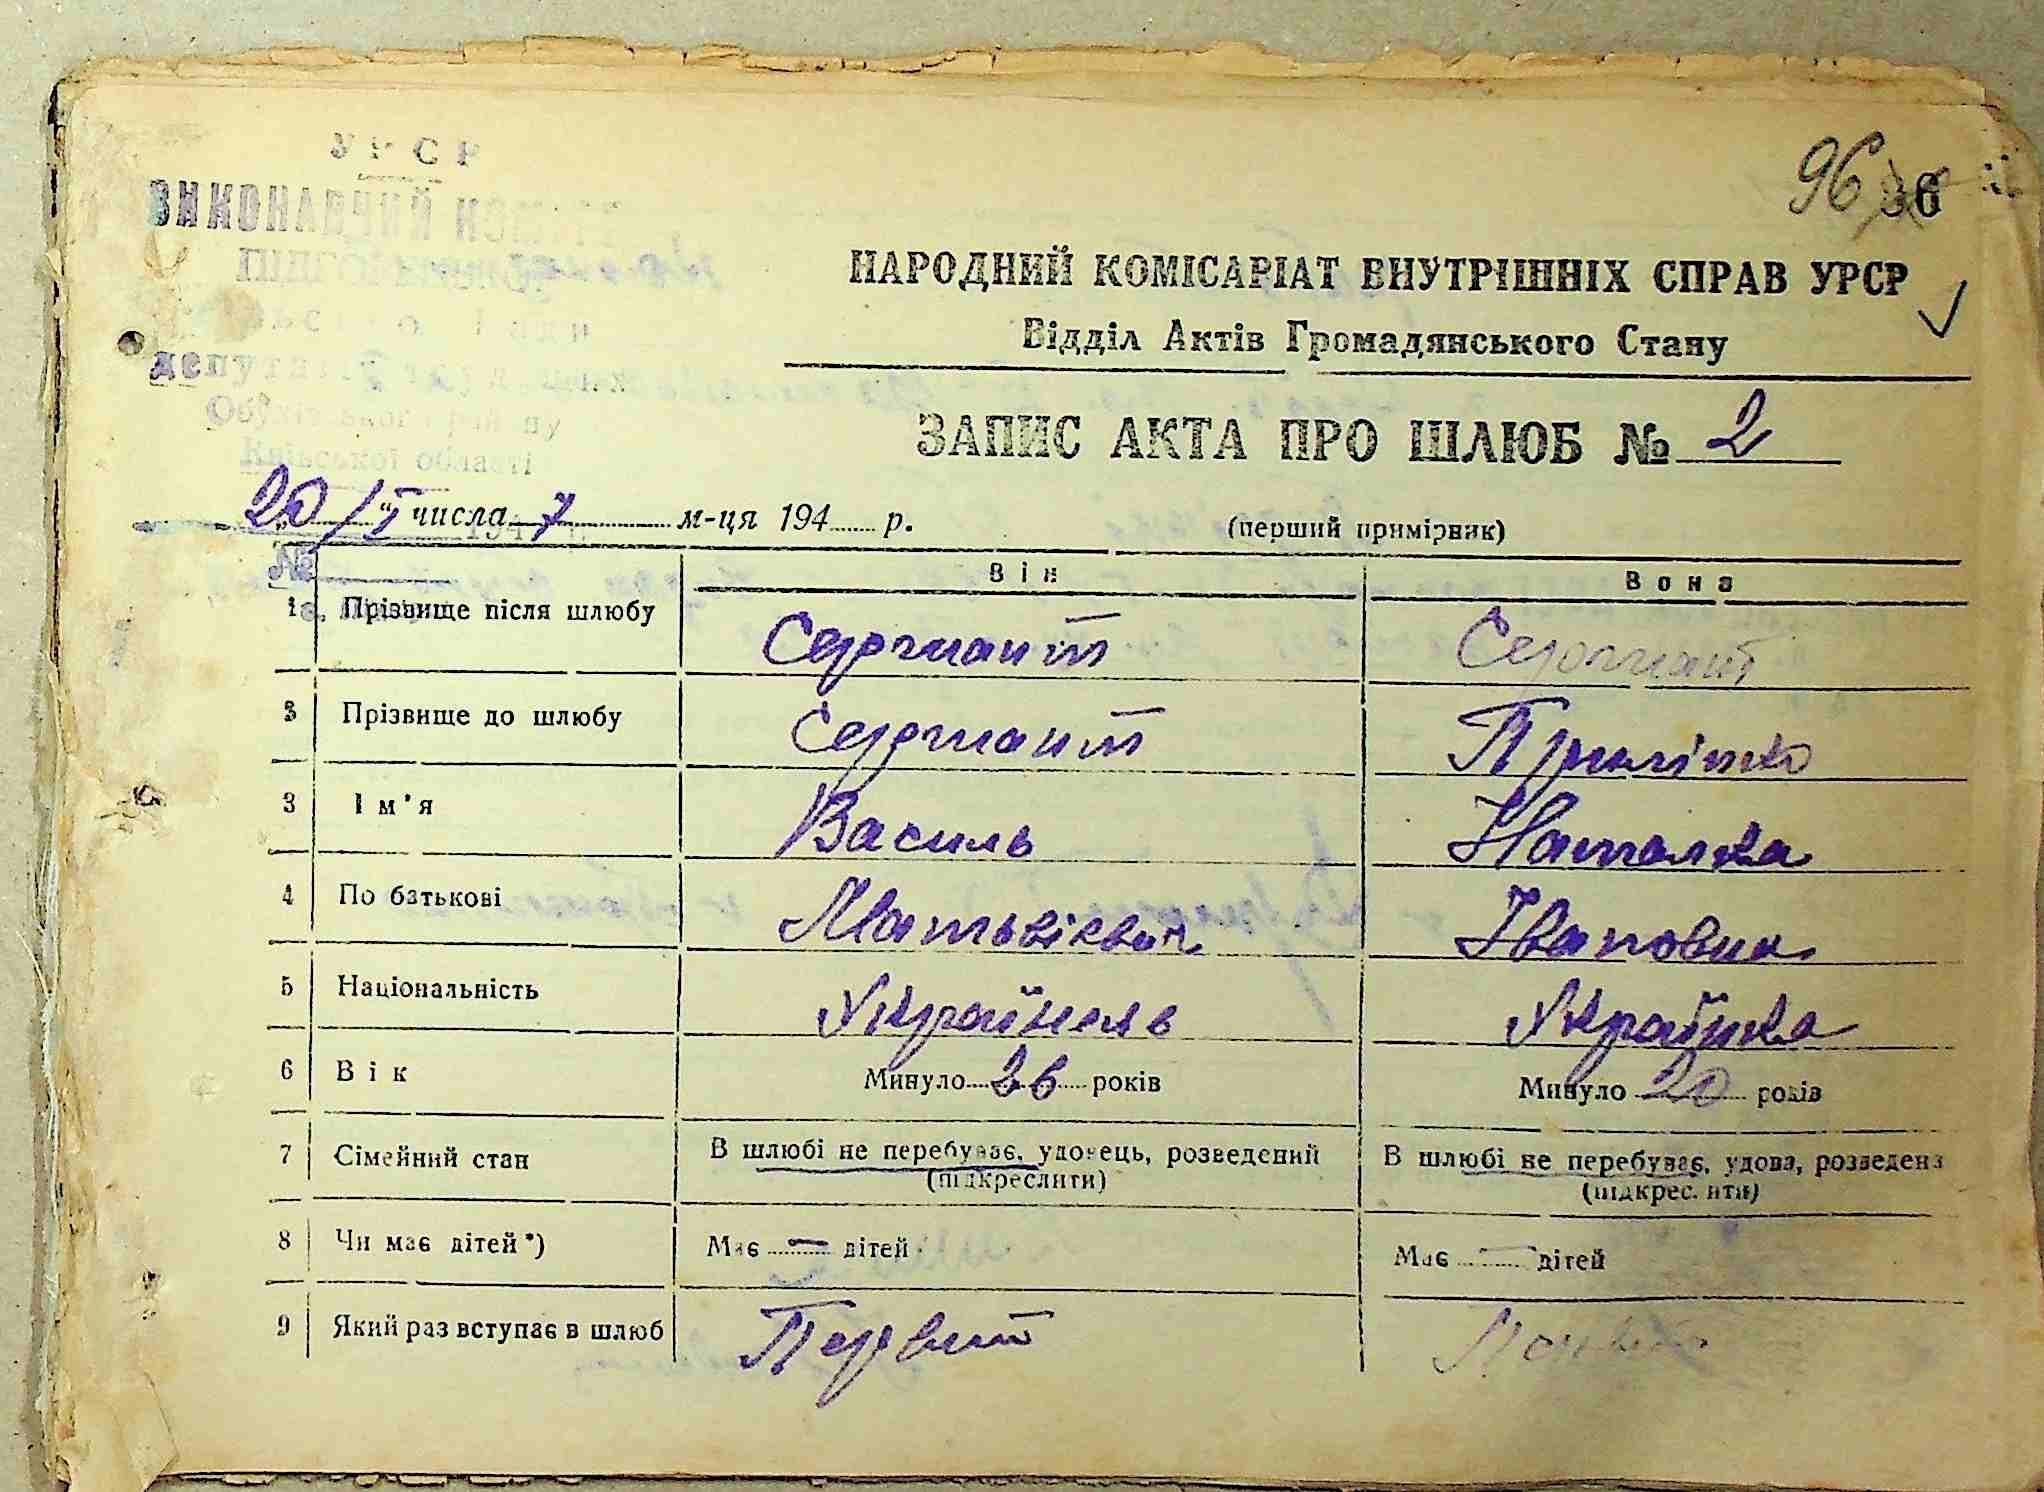 УРСР
96 36
ВИКОНАВЧИЙ КОМІТЕТ
НАРОДНИЙ КОМІСАРІАТ ВНУТРІШНІХ СПРАВ УРСР
Відділ Актів Громадянського Стану
депутатів
Обухівського району
Київської області
ЗАПИС АКТА ПРО ШЛЮБ № 2
„20/I“ числа 7 м-ця 194 р.
(перший примірник)
№ Він Вона
1 Прізвище після шлюбу Сержант Сержант
2 Прізвище до шлюбу Сержант Приліпко
3 Ім'я Василь Наталка
4 По батькові Матьвієвич Івановна
5 Національність Українець Українка
6 Вік Минуло 26 років Минуло 20 років
7 Сімейний стан В шлюбі не перебуває, удовець, розведений В шлюбі не перебуває, удова, розведена
(підкреслити) (підкреслити)
8 Чи має дітей*) Має — дітей Має — дітей
9 Який раз вступає в шлюб Первий